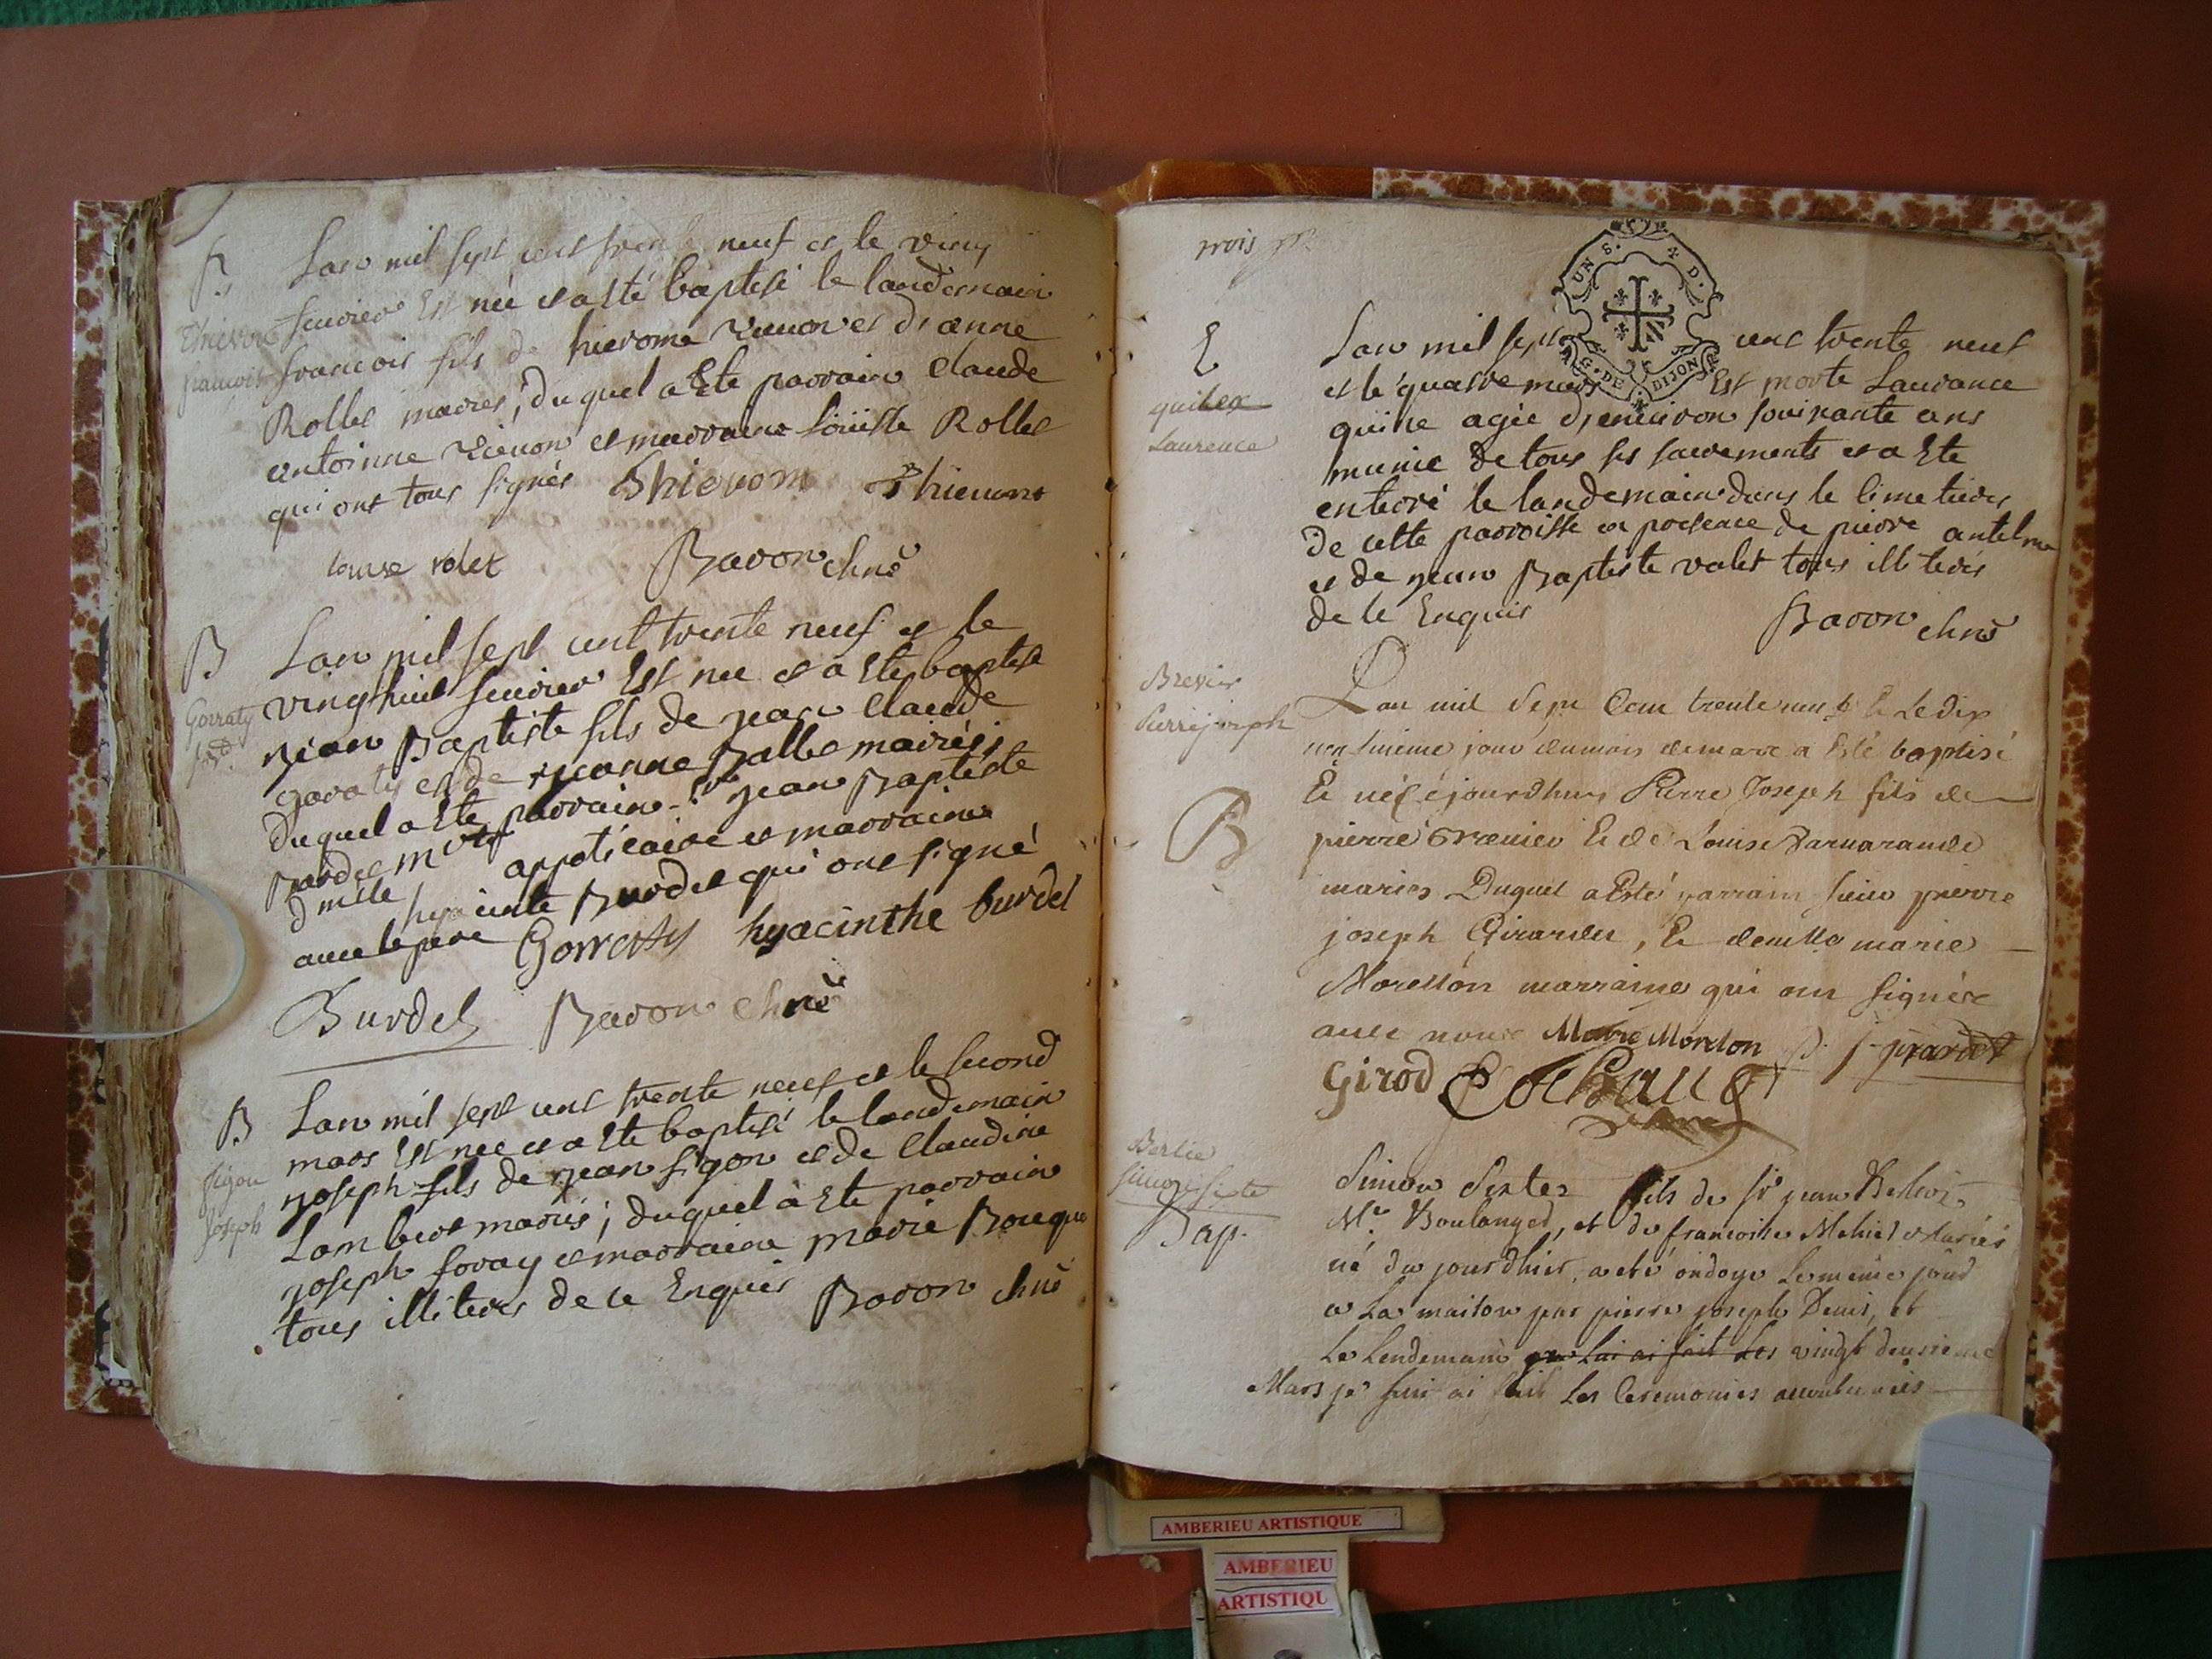 B
Lan mil sept cent trente neuf et le ving
feuvrier Est néé et a esté baptisé le landemain
francois fils de hierome et d'anne
Rollet mariés; duquel a Este parrain Claude
antoinne et marraine Louisse Rollet
qui ont tous signés
louise rolet Baron
B
Lan mil sept cent trente neuf et le
vingthuit feuvrier Est née et a Este baptisé
Gorraty
jean Baptiste fils de jean Claude
goraty et de jeanne Ballet mariés;
duquel a Este parrain Sr jean Baptiste
Burdet Mtre appoticaire et marraine
dmlle hyacinte Burdet qui ont signé
avec le pere Gorraty hyacinthe burdet
Burdet Baron
B
Lan mil sept cent trente neuf et le second
mars Est née et a Este baptisé le landemain
figon
joseph fils de jean figon et de Claudine
Joseph
Lambert mariés; duquel a Este parrain
joseph foray et marraine marie Bouque
tous illiterés de ce Enquis Baron
trois
UN S. D.
G. DE DIJON
E
Lan mil sept cent trente neuf
et le quatre mars Est morte Laurance
Laurence
quine agée d'environ soixante ans
munie de tous ses sacrements et a Este
enterré le landemain dans le cimetiere
de cette parroisse en presence de pierre antelme
et de jean Baptiste valet tous illiterés
de ce Enquis Baron
Pierre joseph
Lan mil Sept Cent trente neuf & Le dix
neufvieme jour du mois de mars a Esté baptisé
B
Et né cejourdhuy Pierre Joseph fils de
pierre Et de Louise
mariés Duquel a Esté parrain sieur pierre
joseph Girardet, Et demlle marie
Morellon marraine qui ont signés
avec nous Marie Morelon P. J. girardet
Girod
Simon Sixte
Bap.
Simon Sixte fils de Sr jean
Mre Boulanger, et de francoise mariés
né du jourdhier, a eté ondoyé le meme jour
a La maison par pierre joseph Denis, et
Le Lendemain vingt deuxieme
Mars je lui ai fait Les Ceremonies accoutumées
AMBERIEU ARTISTIQUE
AMBERIEU
ARTISTIQU